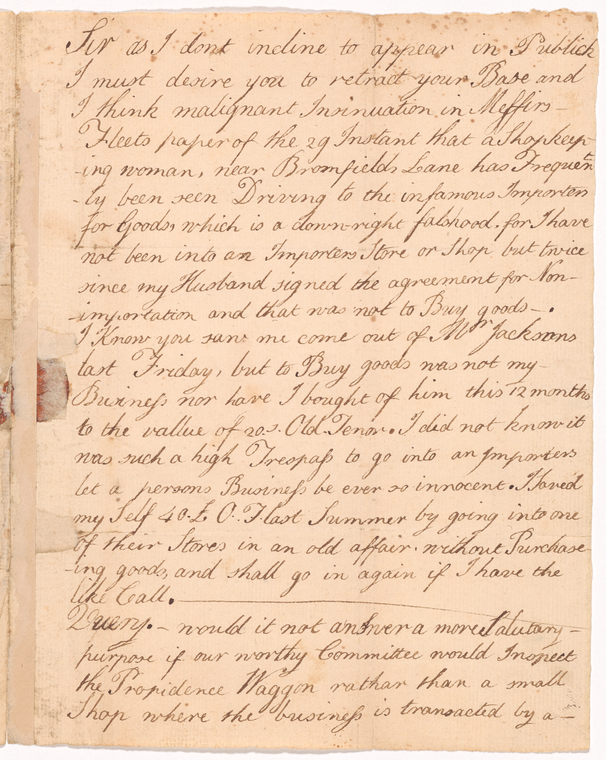 Sir as I dont incline to appear in Publick
I must desire you to retract your Base and
I think malignant Insinuation in Messirs-
Fleets paper of the 29 Instant that a Shopkeep-
-ing woman, near Bromfields Lane has Frequent
-ly been seen Driving to the infamous Importers
for Goods, which is a down-right falshood. for I have
not been into an Importers Store or Shop but twice
since my Husband signed the agreement for Non-
-importation and that was not to Buy goods-.
I Know you saw me come out of Mr. Jacksons
last Friday, but to Buy goods was not my-
Business nor have I bought of him this 12 months
to the vallue of 20s. Old Tenor. I did not know it
was such a high Trespass to go into an Importers
let a persons Business be ever so innocent. I Saved
my Self 40.£ O.T last Summer by going into one
of their Stores in an old affair. without Purchase-
-ing goods, and shall go in again if I have the
like Call.
Query.- would it not answer a more Salutary-
purpose if our worthy Committee would Inspect
the Providence Waggon rathar than a small
Shop where the business is transacted by a-